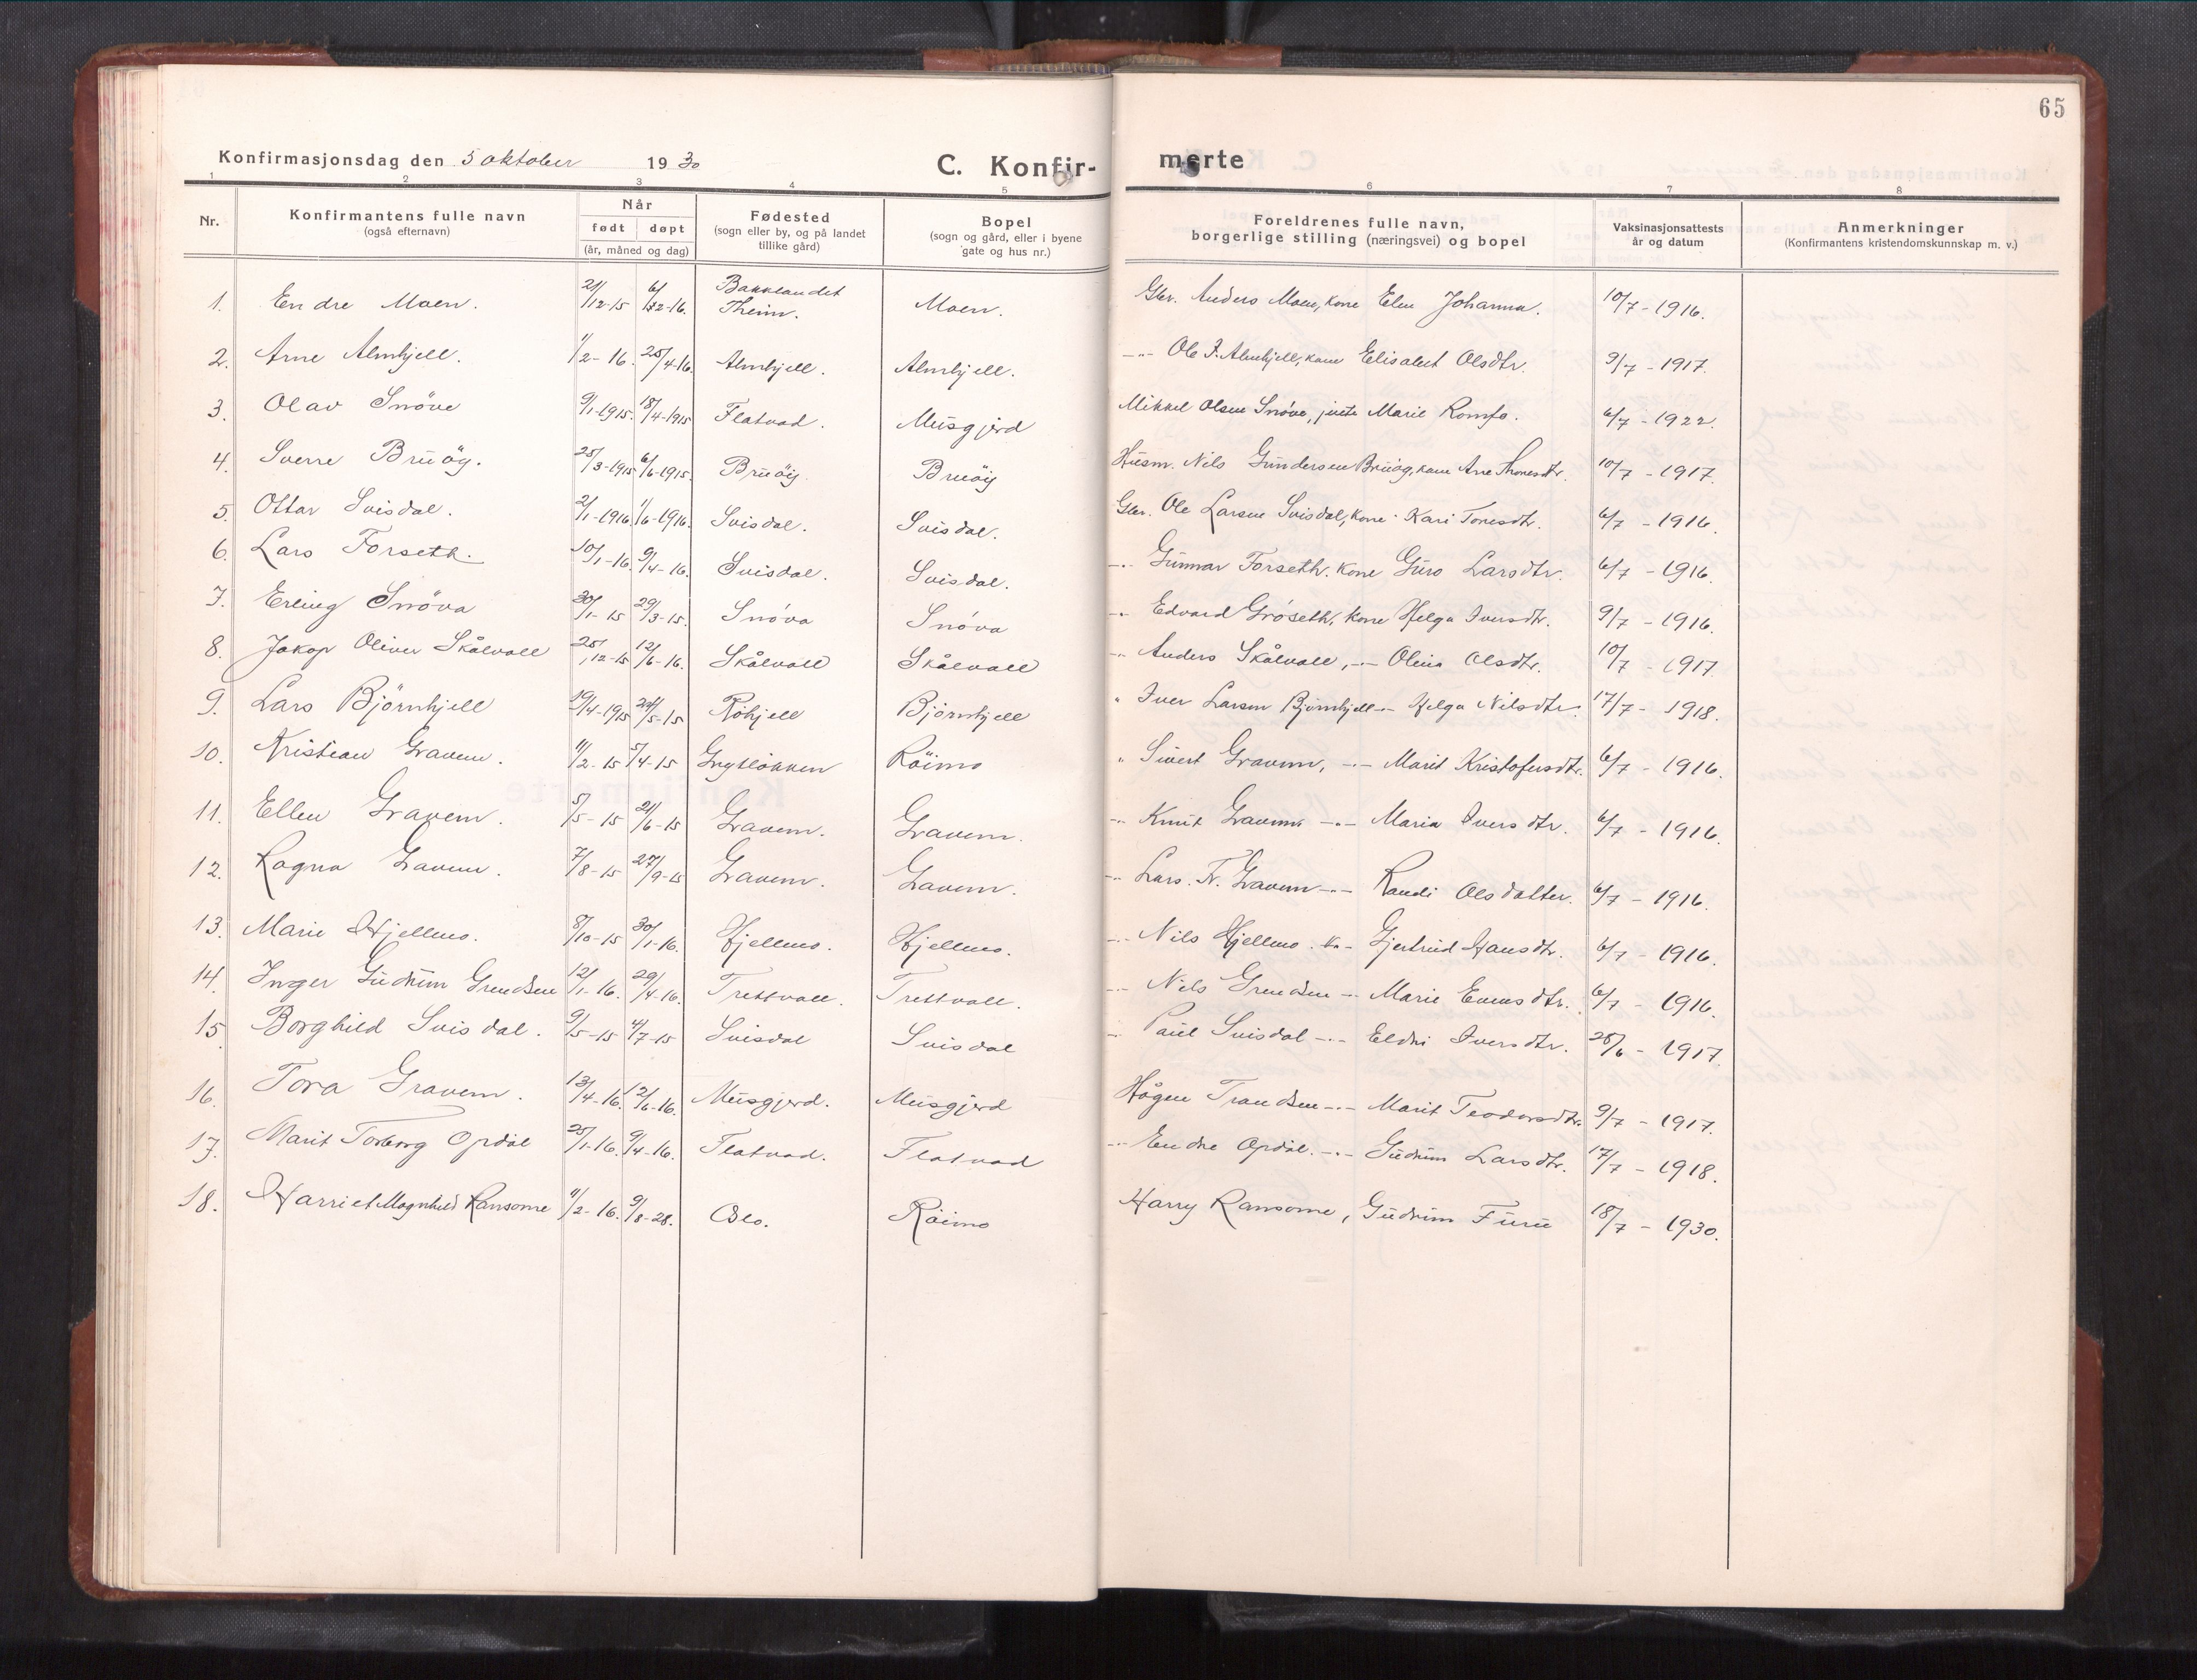 65
Konfirmasjonsdag den 5 oktober 1930
C. Konfir-merte
1 2 3 4 5 6 7 8
Nr.
Konfirmantens fulle navn
(også efternavn)
Når
født døpt
(år, måned og dag)
Fødested
(sogn eller by, og på landet
tillike gård)
Bopel
(sogn og gård, eller i byene
gate og hus nr.)
Foreldrenes fulle navn,
borgerlige stilling (næringsvei) og bopel
Vaksinasjonsattests
år og datum
Anmerkninger
(Konfirmantens kristendomskunnskap m. v.)
1. Endre Moen. 21/12-15 Bakklandet Theim. Moen. Gbr. Anders Moen, kone Elen Johanna. 10/7-1916.
2. Arne Almhjell. 1/2-16. 25/4-16. Almhjell. Almhjell. -"- Ole I. Almhjell, kone Elisabet Olsdtr. 9/7-1917.
3. Olav Snöve 9/1-1915. 18/4-1915 Flatvad. Musgjerd Mikkel Olsen Snöve, Marie Romfo. 6/7-1922.
4. Sverre Bruöy. 25/3-1915 6/6-1915. Bruöy Bruöy Husm. Nils Gundersen Bruöy, kone Ane Thoresdtr. 10/7-1917.
5. Ottar Svisdal. 2/1-1916 1/6-1916. Svisdal. Svisdal. Gbr. Ole Larsen Svisdal, kone Kari Toresdtr. 6/7-1916.
6. Lars Forseth. 10/1-16. 9/4-16. Svisdal. Svisdal. -"- Gunnar Forseth. kone Guro Larsdtr. 6/7-1916.
7. Erling Snöva 30/1-15 29/3-15. Snöva Snöva -"- Edvard Gröseth, kone Helga Iversdtr. 9/7-1916.
8. Jakop Oliver Skålvoll 25/12-15 12/6-16. Skålvoll Skålvoll -"- Anders Skålvoll, -"- Olina Olsdtr. 10/7-1917
9. Lars Björnhjell 19/4-1915 24/5-15 Röhjell Björnhjell " Iver Larsen Björnhjell -"- Helga Nilsdtr. 17/7-1918.
10. Kristian Gravem. 11/2-15 5/4-15 Grytløkken Röimo " Sivert Gravem, -"- Marit Kristofersdtr. 6/7-1916.
11. Ellen Gravem. 5/5-15 21/6-15 Gravem. Gravem. -"- Knut Gravem -"- Maria Iversdtr. 6/7-1916.
12. Ragna Gravem. 7/8-15 27/9-15 Gravem. Gravem. -"- Lars. Tr. Gravem -"- Randi Olsdatter. 6/7-1916.
13. Marie Hjellmo. 8/10-15 30/1-16. Hjellmo. Hjellmo. -"- Nils Hjellmo. k. Gjertrud Hansdtr. 6/7-1916.
14. Inger Gudrun Grendsen 12/1-16. 29/4-16. Trettvoll. Trettvoll. -"- Nils Grendsen -"- Marie Evensdtr. 6/7-1916.
15. Borghild Svisdal. 9/5-15 4/7-15 Svisdal Svisdal -"- Paul Svisdal -"- Eldri Iversdtr. 28/6-1917.
16. Tora Gravem. 13/4-16. 12/6-16. Musgjerd. Musgjerd Hågen Trondsen -"- Marit Teodorsdtr. 9/7-1917.
17. Marit Torborg Opdöl 25/1-16. 9/4-16. Flatvad. Flatvad -"- Endre Opdöl. -"- Gudrun Larsdtr. 17/7-1918.
18. Harriet Magnhild Ransome 11/2-16. 9/8-28. Oslo. Röimo Harry Ransome, Gudrun Furu 18/7-1930.